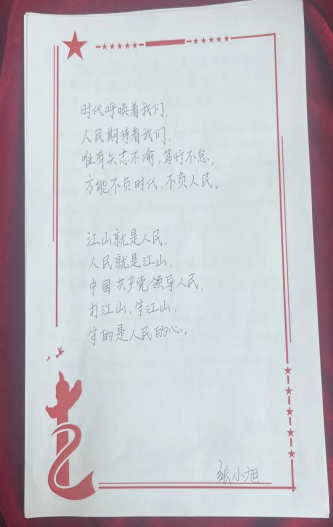 时代呼唤着我们,
人民期待着我们,
唯有矢志不渝,笃行不怠,
方能不负时代,不负人民。
江山就是人民,
人民就是江山,
中国共产党领导人民,
打江山,守江山,
守的是人民的心。
张小旭